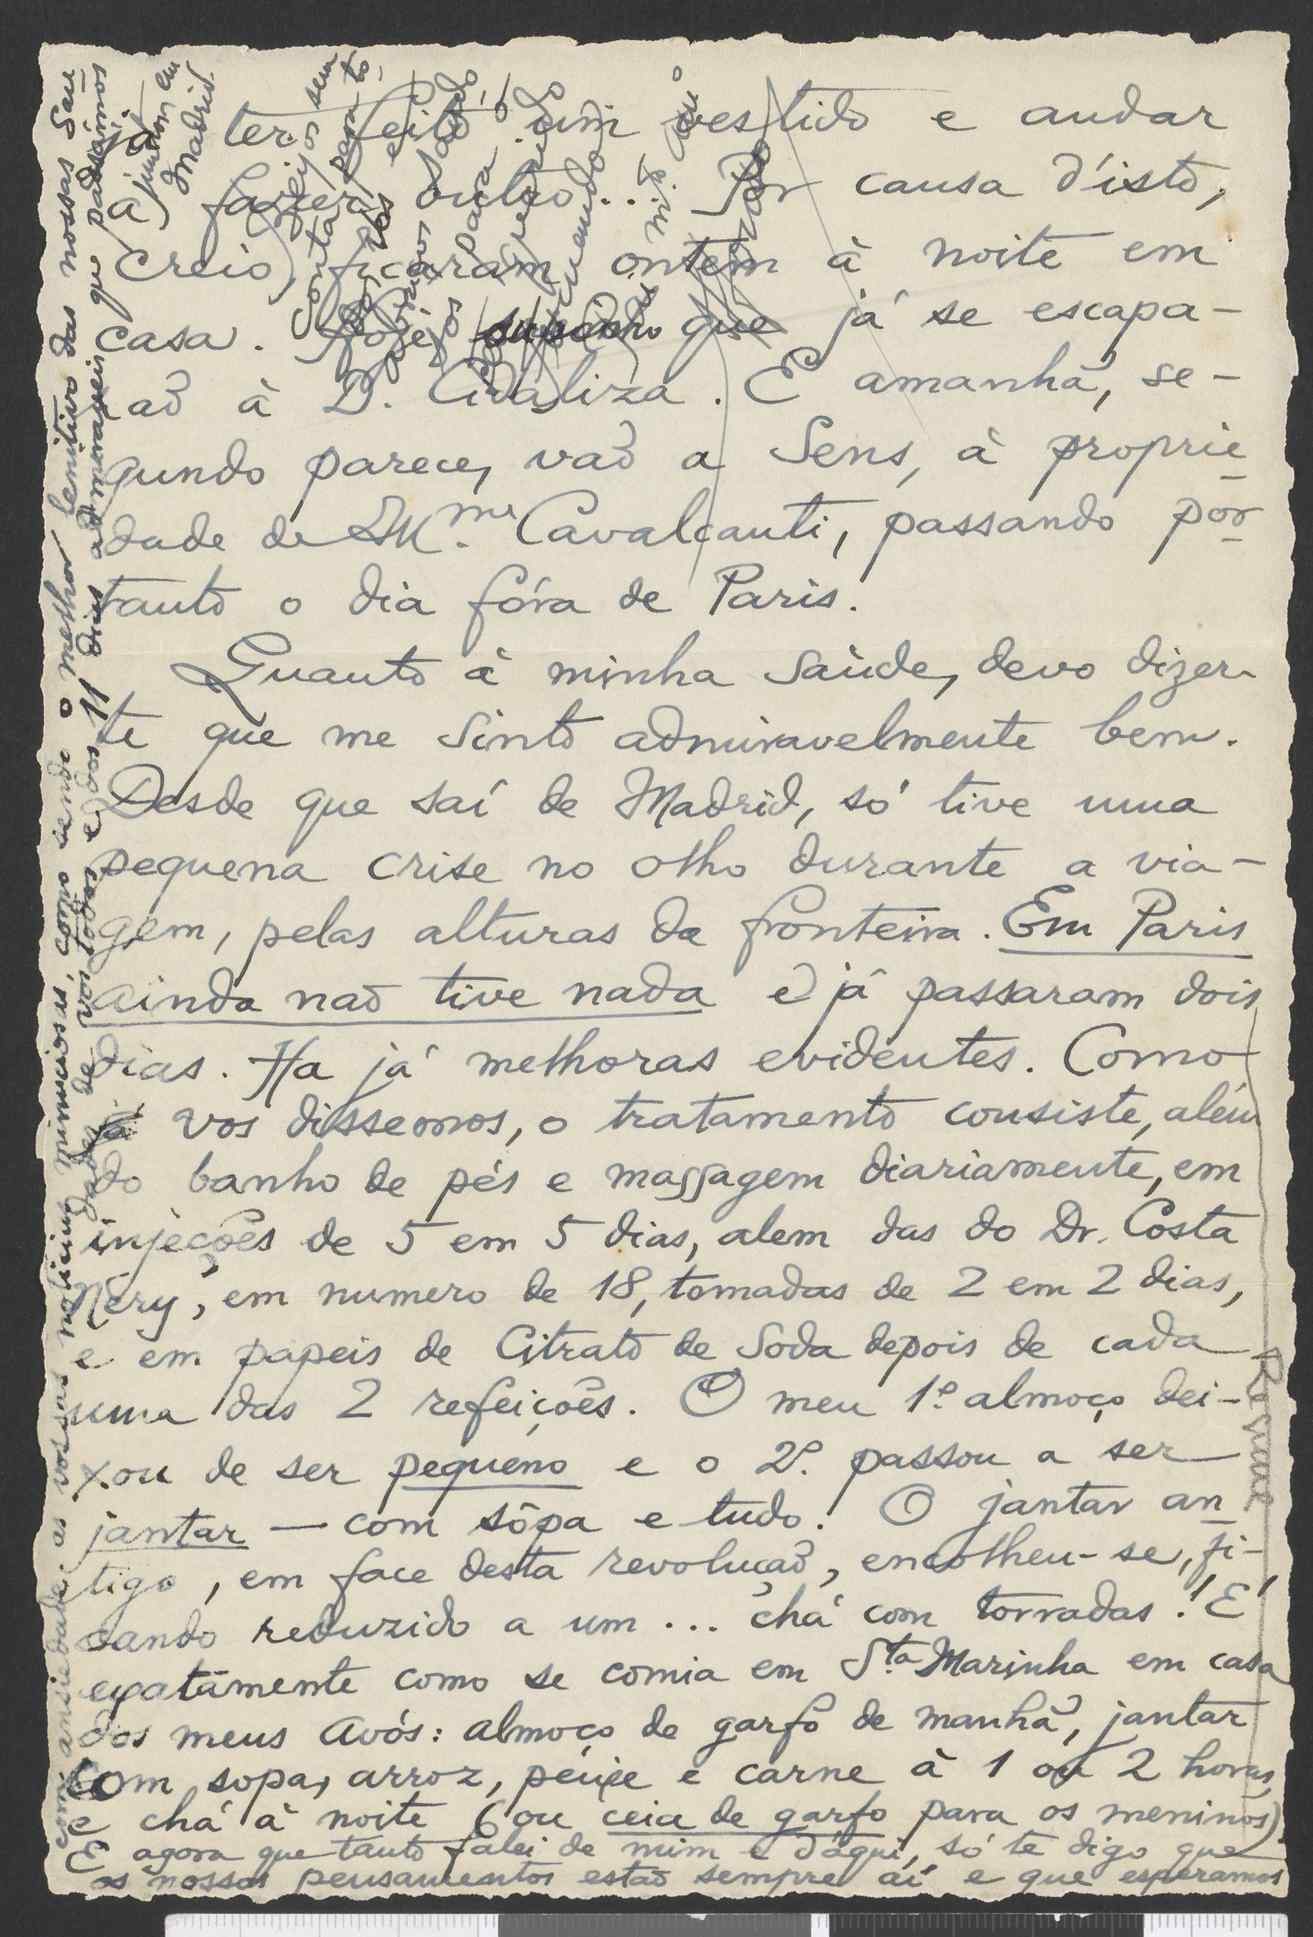 já ter feito um vestido e andar
a fazer outro... Por causa d'isto,
creio, ficaram ontem à noite em
casa. Hoje, suponho que já se escapa-
rão à D. Civaliza. E amanhã, se-
gundo parece, vão a Sens, à proprie-
dade de Mme. Cavalcanti, passando por-
tanto o dia fóra de Paris.
Quanto à minha saùde, devo dizer-
te que me sinto admiravelmente bem.
Desde que saí de Madrid, só tive uma
pequena crise no olho durante a via-
gem, pelas alturas da fronteira. Em Paris
ainda não tive nada e já passaram dois
dias. Ha já melhoras evidentes. Como
já vos dissemos, o tratamento consiste, além
do banho de pés e massagem diariamente, em
injeções de 5 em 5 dias, alem das do Dr. Costa
Néry, em numero de 18, tomadas de 2 em 2 dias,
e em papeis de Citrato de Soda depois de cada
uma das 2 refeições. O meu 1º almoço dei-
xou de ser pequeno e o 2º passou a ser
jantar — com sôpa e tudo! O jantar an-
tigo, em face desta revolução, encolheu-se, fi-
cando reduzido a um... chá com torradas! É
exatamente como se comia em Sta Marinha em casa
dos meus avós: almoço de garfo de manhã, jantar
com sopa, arroz, peixe e carne à 1 ou 2 horas,
e chá à noite (ou ceia de garfo para os meninos).
E agora que tanto falei de mim e d'aqui, só te digo que
os nossos pensamentos estão sempre aí e que esperamos
com ansiedade as vossas noticias minuciosas, como sendo o melhor lenitivo das nossas sau-
dades de vos todos e dos 11 dias admiraveis que passámos
juntos em
Madrid.
beijos sem
conta para